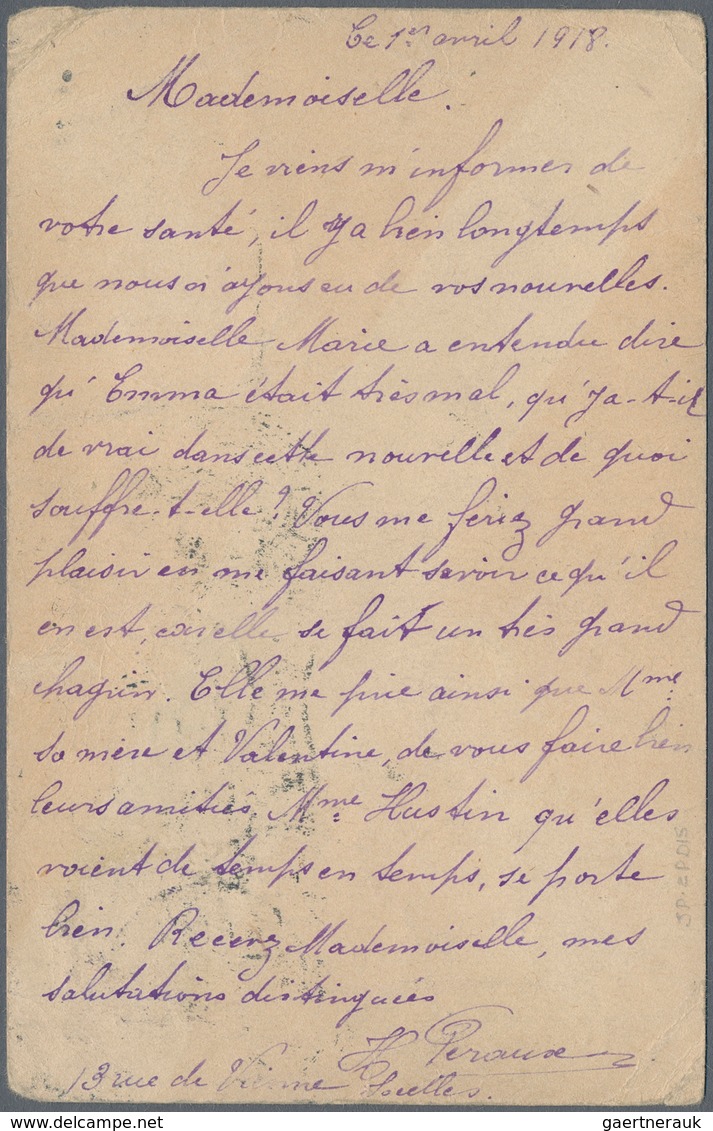 Ce 1er avril 1918.
Mademoiselle.
Je viens m'informer de
votre santé, il y a bien longtemps
que nous n'ayons eu de vos nouvelles.
Mademoiselle Marie a entendu dire
qu'Emma était très mal, qu'y a-t-il
de vrai dans cette nouvelle et de quoi
souffre-t-elle? Vous me feriez grand
plaisir en me faisant savoir ce qu'il
en est, car elle se fait un très grand
chagrin. Elle me prie ainsi que Mme
sa mère et Valentine, de vous faire bien
leurs amitiés Mme Hustin qu'elles
voient de temps en temps, se porte
bien. Recevez Mademoiselle, mes
salutations distinguées
H Peraux
13 rue de Vienne Ixelles.
gaertnerauk